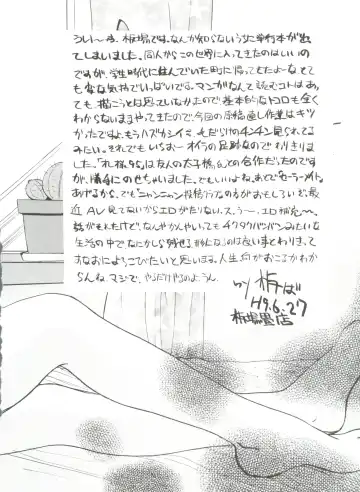 うい〜す、板場です。なんか知らないうちに単行本が出
てしまいました。同人からこの世界に入ってきたのはいいの
ですが、学生時代に住んでいた町に帰ってもたよーなとて
も変な気持でいっぱいです。マンガなんて読むコトはあ
っても、描こうとは思っていなかったので、基本的なトコロも全く
わからないままやってきたので今回の原稿直し作業はキツ
かったですよ。もうハズカシイ
みたい。それでもいちおー オイラの足跡なのでわりきりま
した。は友人の との合作だったのです
が、勝手にのせちゃいました。でもいいよね。あとでラーメン
あげるから。でもニャンニャン投稿のがおもしろいぞ。最
近AV見てないからエロがたりない。ス、うー、エロ補充〜。
話がそれたけど、なんやかんやいってもイクタクバンバンみたいな
生活の中でなにかしら残せる形になるのは良い事とわりきって
すなおによろこびたいと思います。人生何がおこるかわか
らんね、マジで。やるだけやるのよ。うん。
by 板ば
H9.6.27
板場